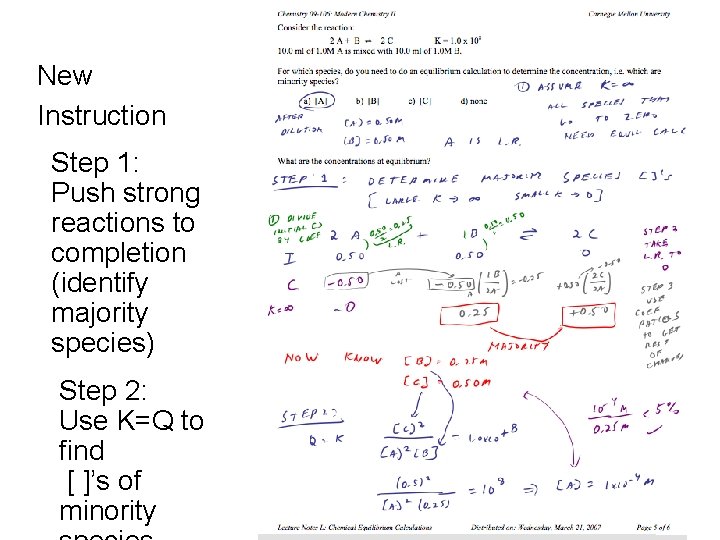 New
Instruction
Step 1:
Push strong
reactions to
completion
(identify
majority
species)
Step 2:
Use K=Q to
find
[ ]'s of
minority
Chemistry 09-106: Modern Chemistry II Carnegie Mellon University
Consider the reaction:
2 A + B ⇌ 2 C K = 1.0 x 10⁸
10.0 ml of 1.0M A is mixed with 10.0 ml of 1.0M B.
For which species, do you need to do an equilibrium calculation to determine the concentration, i.e. which are
minority species?
① ASSUME K=∞
a) [A] b) [B] c) [C] d) none
ALL SPECIES THAT
GO TO ZERO
NEED EQUIL CALC
AFTER
DILUTION
[A] = 0.50M
[B] = 0.50 M
A IS L.R.
What are the concentrations at equilibrium?
STEP 1: DETERMINE MAJORITY SPECIES []'s
[LARGE K → ∞ SMALL K → 0]
① DIVIDE
INITIAL C
BY COEF
2 A + 1B ⇌ 2C
L.R.
STEP 2
TAKE
L.R. TO
0
I 0.50 0.50 0
C -0.50 -0.50 (1B/2A) = -0.25 +0.50 (2C/2A)
K=∞ ~0 0.25 +0.50
STEP 3
USE
COEF
RATIOS
TO GET
REST
OF
CHANGE
MAJORITY
NOW KNOW [B] = 0.25M
[C] = 0.50M
STEP 2
Q = K
[C]²/[A]²[B] = 1.0x10⁺⁸
10⁻⁴ M/0.25M < 5% ✓
(0.5)²/[A]² (0.25) = 10⁸ ⇒ [A] = 1x10⁻⁴ M
Lecture Notes L: Chemical Equilibrium Calculations Distributed on: Wednesday, March 21, 2007 Page 5 of 6